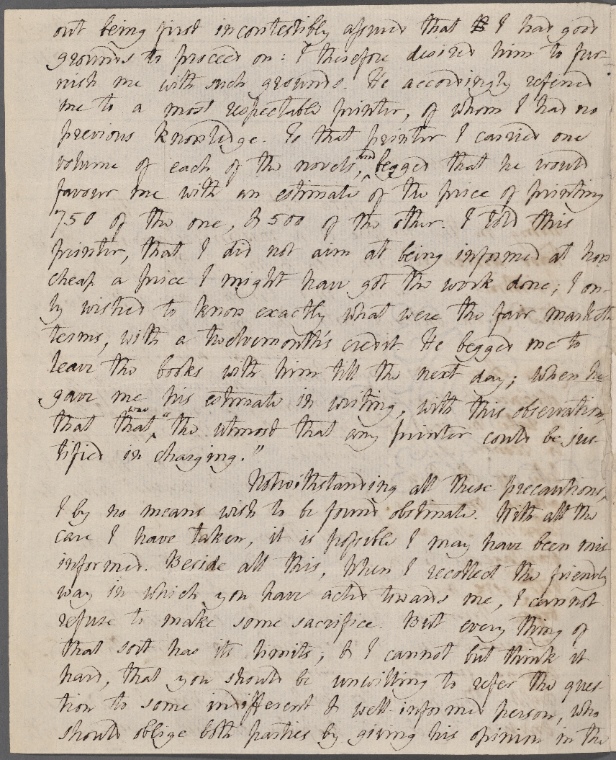 out being first incontestibly assured that I had good
grounds to proceed on: I therefore desired him to fur-
nish me with such grounds. He accordingly referred
me to a most respectable printer, of whom I had no
previous knowledge. To that printer I carried one
volume of each of the novels, and begged that he would
favour me with an estimate of the price of printing
750 of the one, & 500 of the other. I told this
printer, that I did not aim at being informed at how
cheap a price I might have got the work done; I on-
ly wished to know exactly what were the fair market
terms, with a twelvemonth's credit. He begged me to
leave the books with him till the next day; when he
gave me his estimate in writing, with this observation,
that that was "the utmost that any printer could be jus-
tified in charging."
Notwithstanding all these precautions,
I by no means wish to be found obstinate. With all the
care I have taken, it is possible I may have been mis-
informed. Beside all this, when I recollect the friendly
way in which you have acted towards me, I cannot
refuse to make some sacrifice. But every thing of
that sort has its limits; & I cannot but think it
hard, that you should be unwilling to refer the ques-
tion to some indifferent & well informed person, who
should oblige both parties by giving his opinion in the